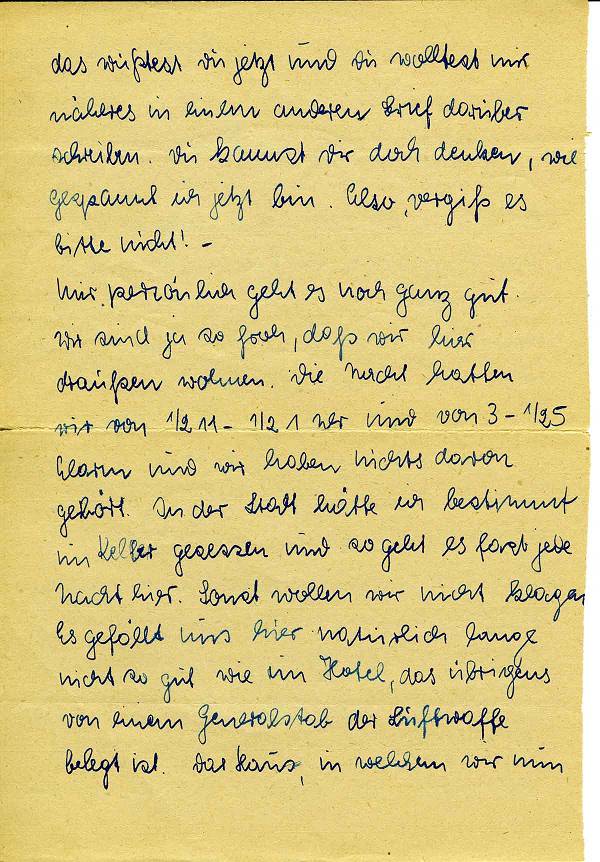 das wußtest du jetzt und du wolltest mir
näheres in einem anderen Brief darüber
schreiben. Du kannst dir doch denken, wie
gespannt ich jetzt bin. Also, vergiß es
bitte nicht! –
Mir persönlich geht es noch ganz gut.
Wir sind ja so froh, daß wir hier
draußen wohnen. Die Nacht hatten
wir von 1/2 11 – 1/2 1 Uhr und von 3 – 1/2 5
Alarm und wir haben nichts davon
gehört. In der Stadt hätte ich bestimmt
im Keller gesessen und so geht es fast jede
Nacht hier. Sonst wollen wir nicht klagen
Es gefällt uns hier natürlich lange
nicht so gut wie im Hotel, das übrigens
von einem Generalstab der Luftwaffe
belegt ist. Das Haus, in welchem wir nun